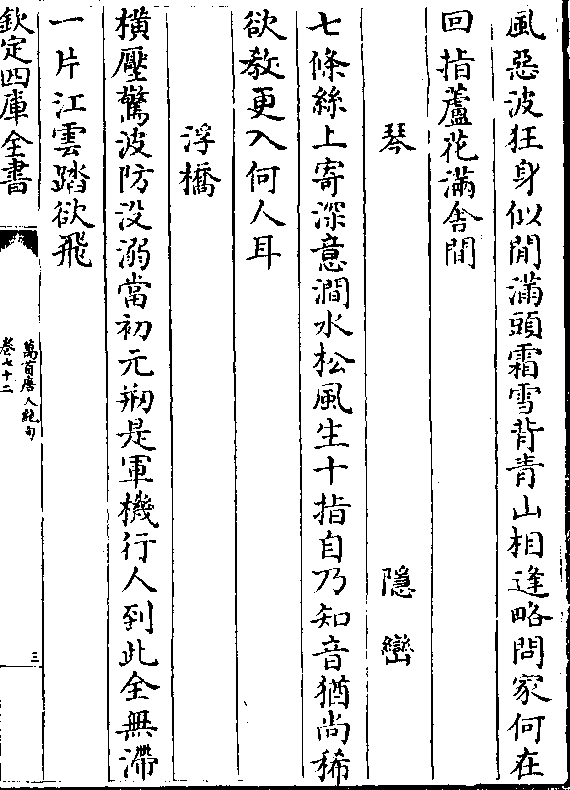 風惡波狂身似閒滿頭霜雪背青山相逢略問家何在
回指蘆花滿舍間
琴　隱巒
七條絲上寄深意澗水松風生十指自乃知音猶尚稀
欲教更入何人耳
浮橋
橫壓驚波防没溺當初元剏是軍機行人到此全無滯
一片江雲踏欲飛
欽定四庫全書
萬首唐人絶句
卷七十二
三